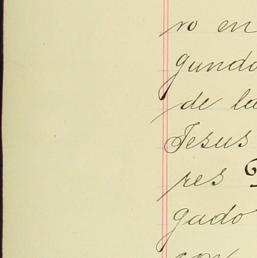 ro en
gundo
de la
Jesus
res
gado
con